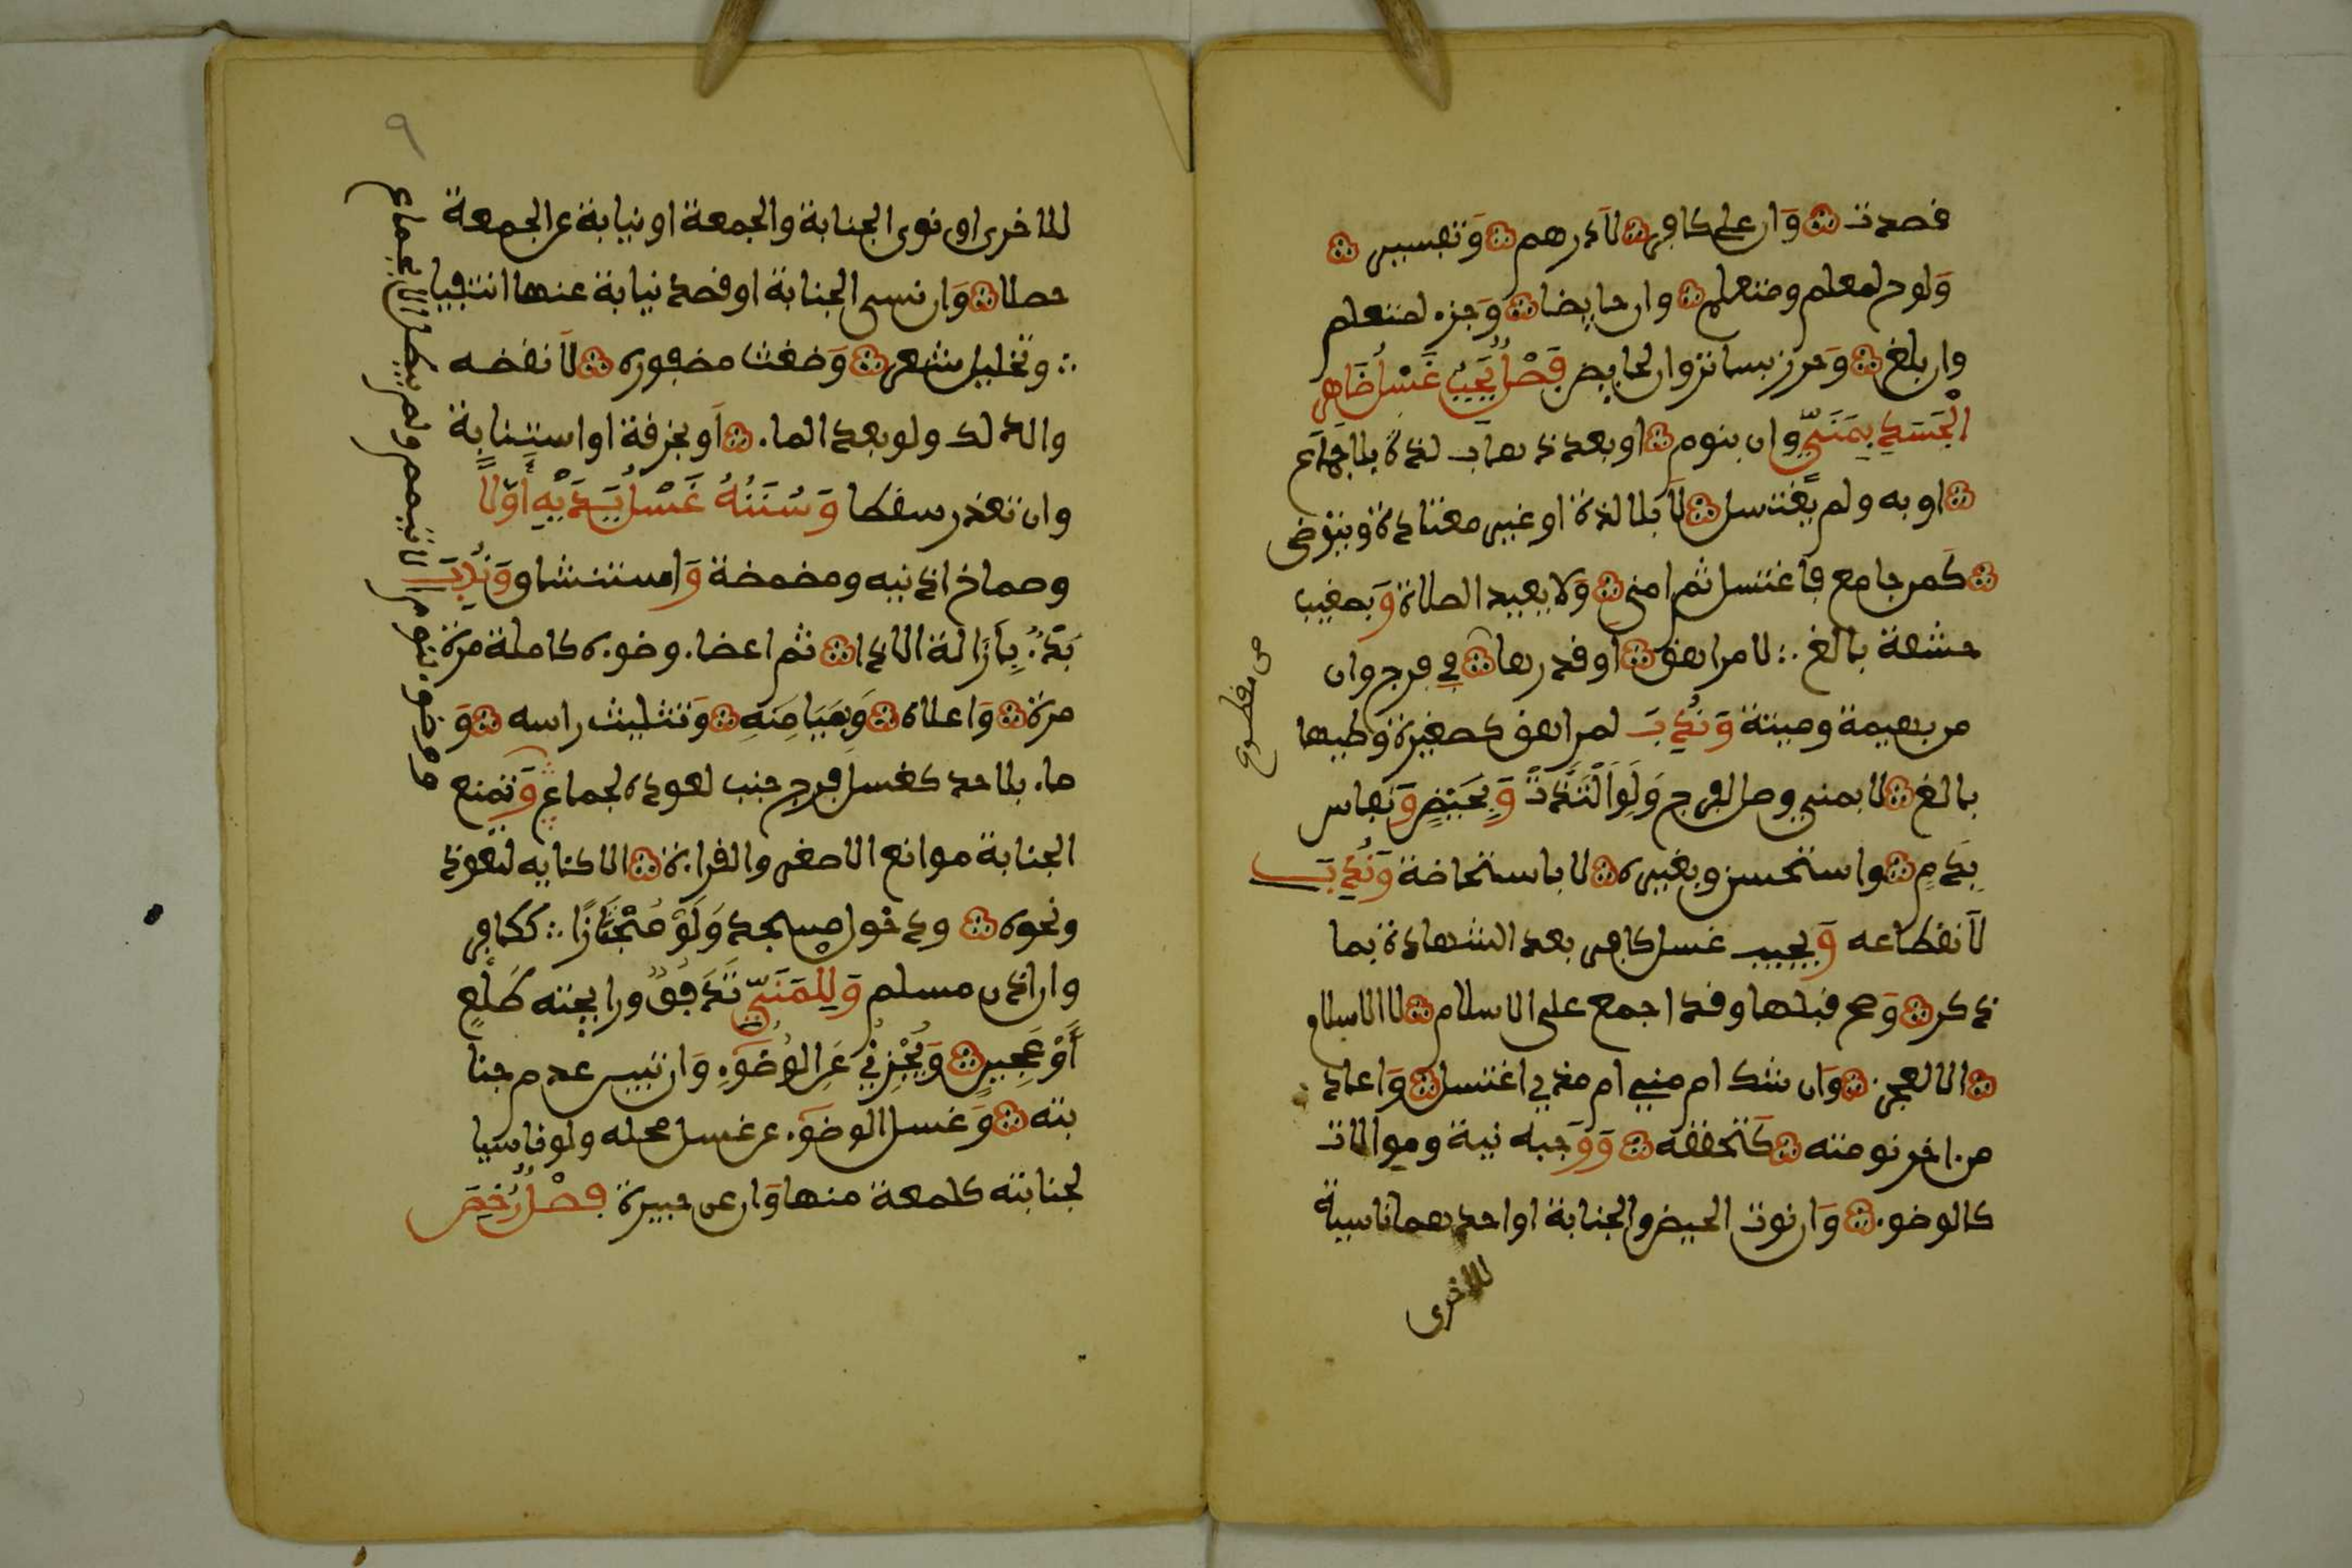 قصدت وان على كافر لا درهم وتفسير
ولوح لمعلم ومتعلم وان حايضا وجزء لمتعلم
وان بلغ وحرز بساتر وان لحايض فصل يجب غسل ظاهر
الجسد بمني وان بنوم او بعد ذهاب لذة بلا جماع
او به ولم يغتسل لا بلا لذة او غير معتادة ويتوضى
كمن جامع فاغتسل ثم امنى ولا يعيد الصلاة وبمغيب
حشفة بالغ لا مراهق او قدرها في فرج وان
من بهيمة وميتة وندب لمراهق كصغيرة وطيها
بالغ لا بمني وصل للفرج ولو التذت وبحيض ونفاس
بدم واستحسن وبغيره لا باستحاضة وندب
لانقطاعه ويجب غسل كافر بعد الشهادة بما
ذكر وصح قبلها وقد اجمع على الاسلام لا الاسلام
الا لعجز وان شك امني ام مذي اغتسل واعاد
من اخر نومته كتحققه وواجبه نية وموالات
كالوضوء وان نوت الحيض والجنابة او احدهما ناسية
للاخرى
من مقطوع
٩
للاخرى او نوى الجنابة والجمعة او نيابة عن الجمعة
حصلا وان نسي الجنابة او قصد نيابة عنها انتفيا
وتخليل شعر وضغث مضفوره لا نقضه
والدلك ولو بعد الماء او بخرقة او استنابة
وان تعذر سقط وسننه غسل يديه أولا
وصماخ اذنيه ومضمضة واستنشاق وندب
بدء بإزالة الاذا ثم اعضاء وضوءه كاملة مرة
مرة واعلاه وميامنه وتثليث راسه و
ماء بلا حد كغسل فرج جنب لعوده لجماع وتمنع
الجنابة موانع الاصغر والقراءة الا كئايه لتعوذ
ونحوه ودخول مسجد ولو مجتازا ككافر
وان اذن مسلم وللمني تدفق ورايحته طلع
أو عجين ويجزئ عن الوضوء وان تبين عدم جنا
بته وغسل الوضوء عن غسل محله ولو ناسيا
لجنابته كلمعة منها وان عن جبيرة فصل رخص